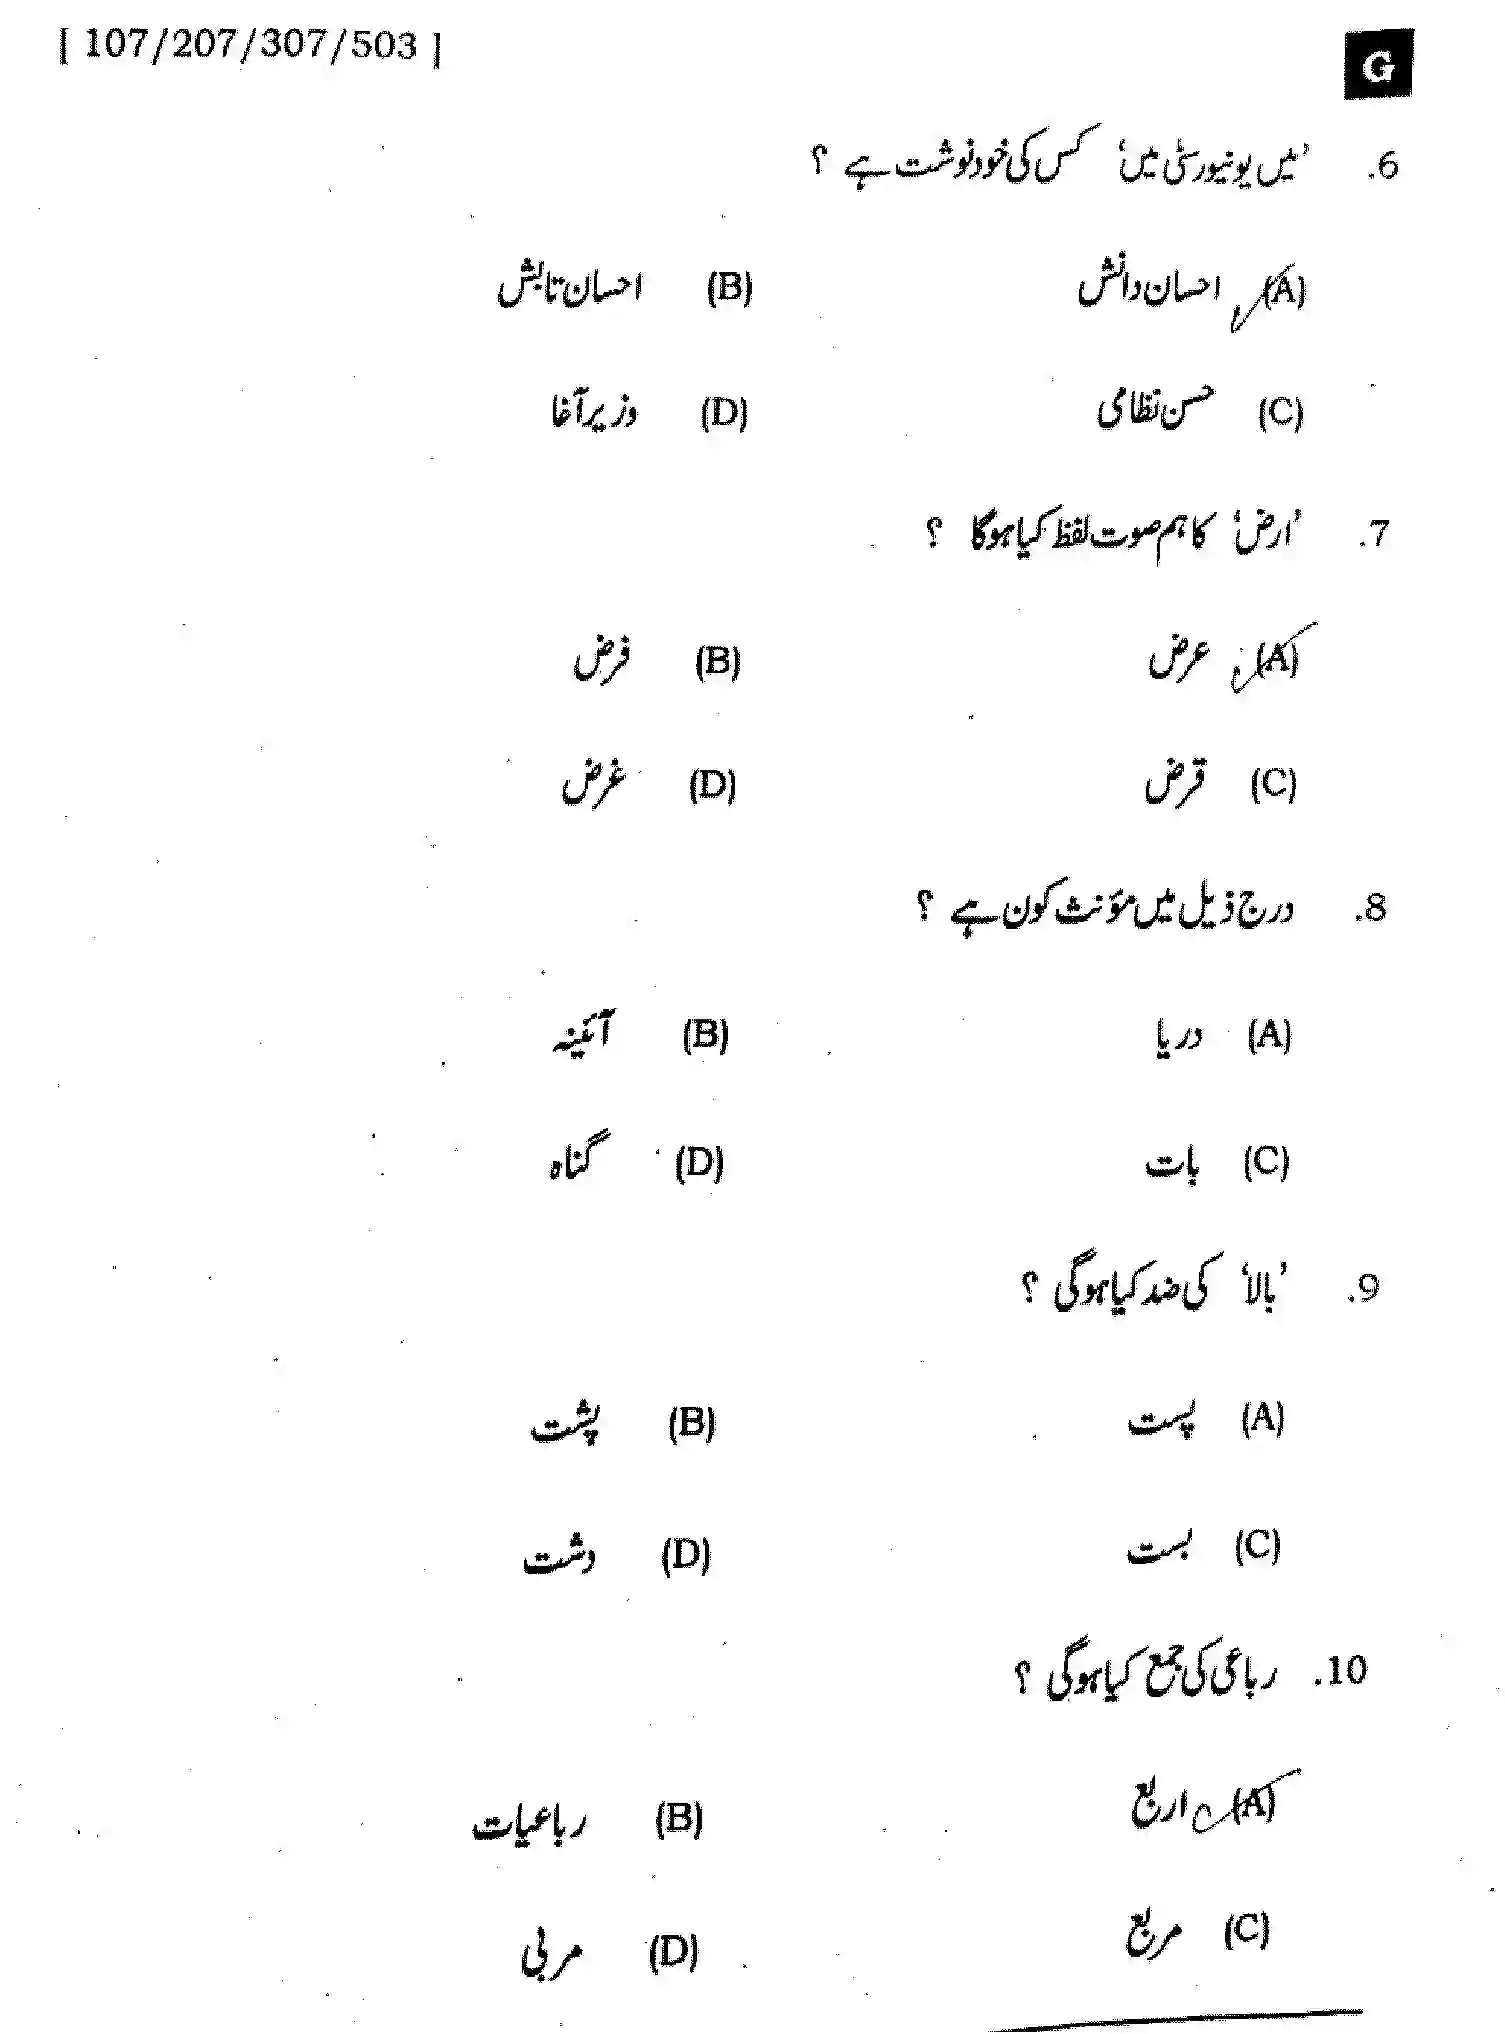 [ 107/207/307/503 ]
G
6. ’میں یونیورسٹی میں‘ کس کی خودنوشت ہے ؟
(A) احسان دانش (B) احسان تابش
(C) حسن نظامی (D) وزیر آغا
7. ’ارض‘ کا ہم صوت لفظ کیا ہوگا ؟
(A) عرض (B) فرض
(C) قرض (D) غرض
8. درج ذیل میں مؤنث کون ہے ؟
(A) دریا (B) آئینہ
(C) بات (D) گناہ
9. ’بالا‘ کی ضد کیا ہوگی ؟
(A) پست (B) پشت
(C) بست (D) دشت
10. رباعی کی جمع کیا ہوگی ؟
(A) اربع (B) رباعیات
(C) مربع (D) مربی